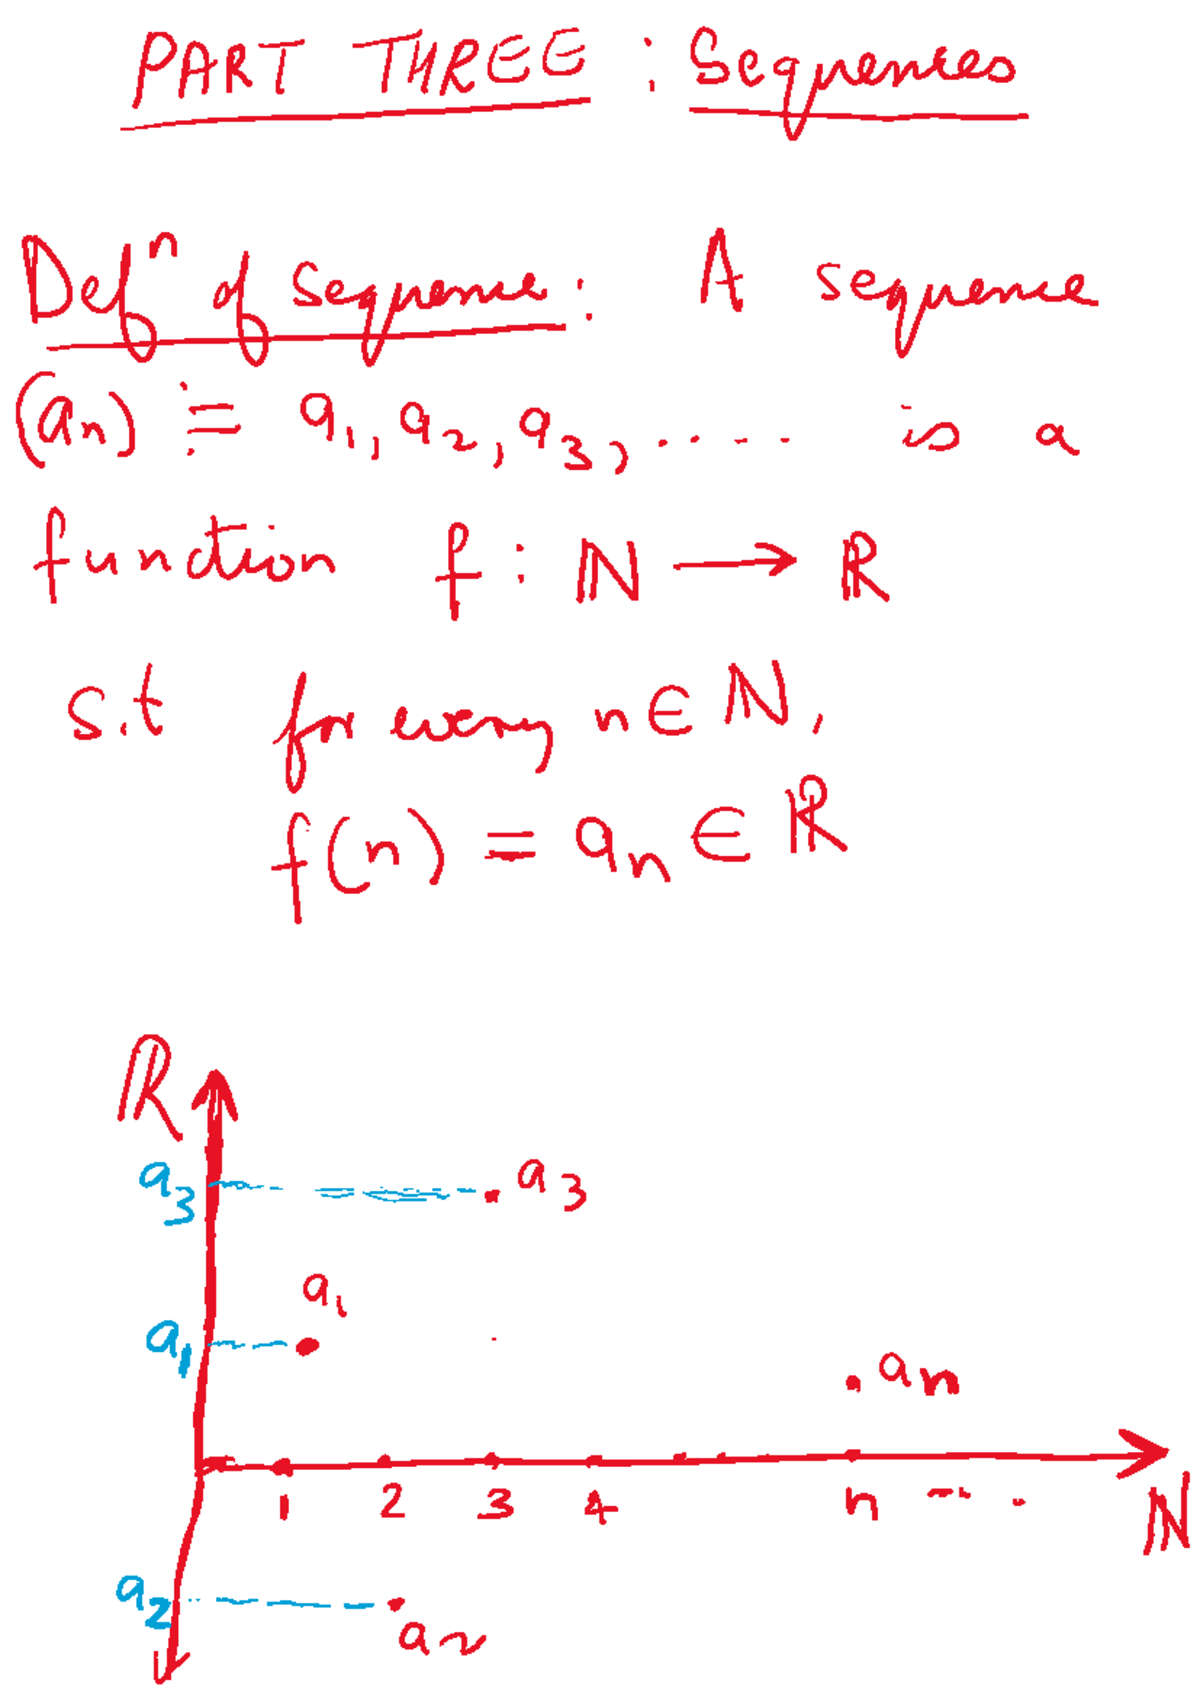 PART THREE : Sequences
Defⁿ of Sequence: A sequence
(aₙ) := a₁, a₂, a₃, ..... is a
function f : ℕ → ℝ
s.t for every n ∈ ℕ,
f(n) = aₙ ∈ ℝ
ℝ
a₃ a₃
a₁
a₁
aₙ
1 2 3 4 n ....
ℕ
a₂
a₂